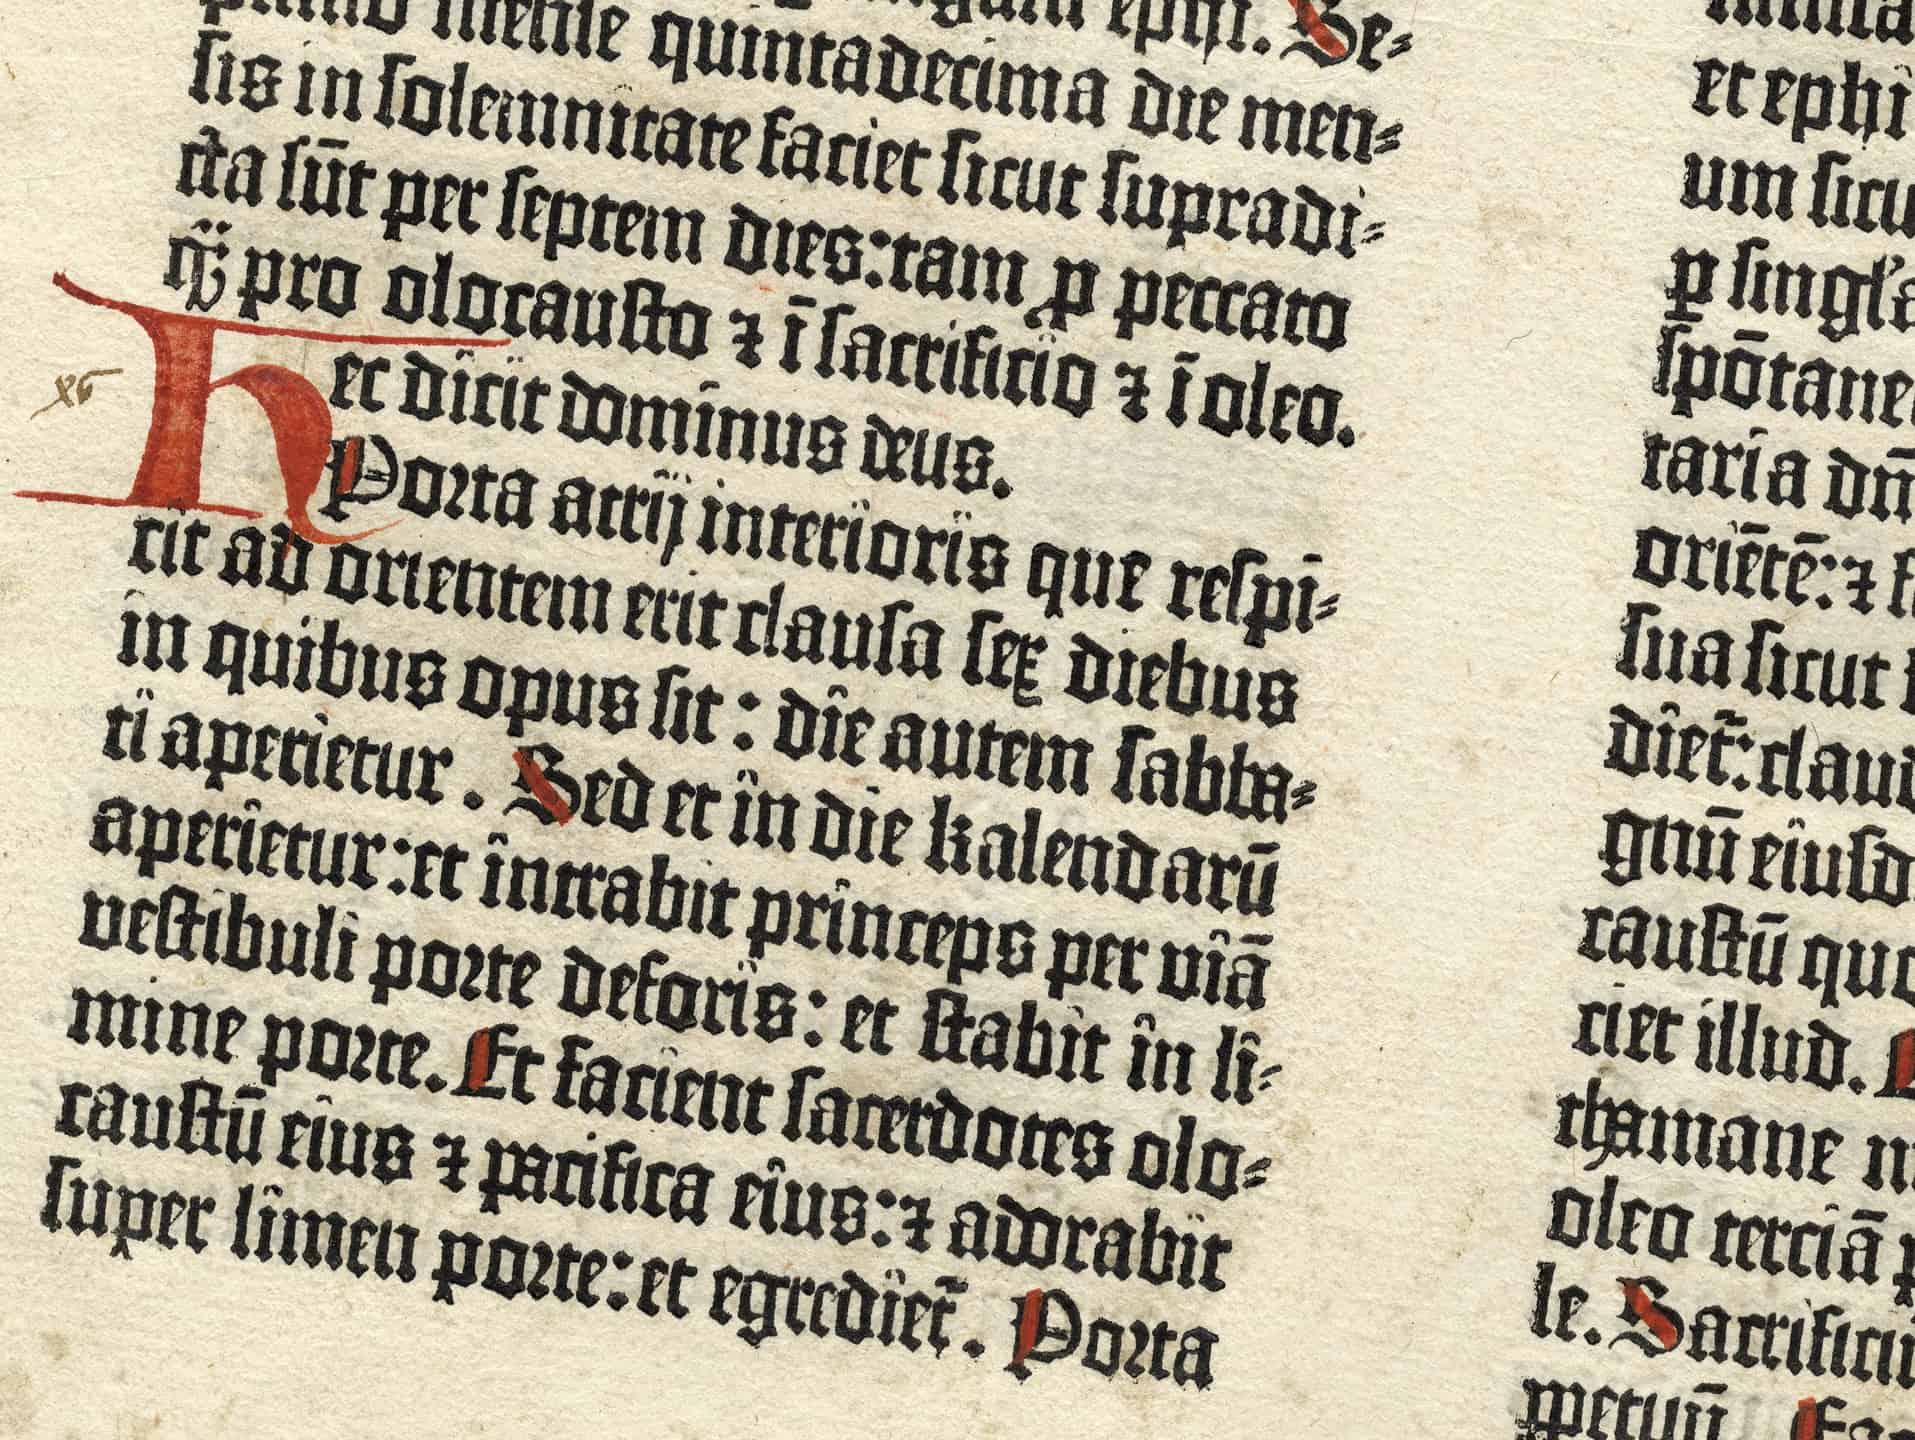 ephi. Se-
ptimo mense quintadecima die men-
sis in solemnitate faciet sicut supradi-
cta sūt per septem dies: tam ꝓ peccato
qͣ̄ꝫ pro olocausto ⁊ ī sacrificio ⁊ ī oleo.
Hec dicit dominus deus.
Porta atrij interioris que respi-
cit ad orientem erit clausa sex diebus
in quibus opus sit: die autem sabba-
ti aperietur. Sed et in die kalendarū
aperietur: et intrabit princeps per viā
vestibuli porte deforis: et stabit in li-
mine porte. Et facient sacerdotes olo-
caustū eius ⁊ pacifica eius: ⁊ adorabit
super limen porte: et egrediet᷑. Porta
et ephi
um sicu
ꝑ singl'a
spōtane
taria dn̄
oriētē: ⁊ f
sua sicut
diet᷑: claud
gnū eiusd
caustū quo
ciet illud.
cha mane
oleo terciā
le. Sacrificiū
ꝑpetuū